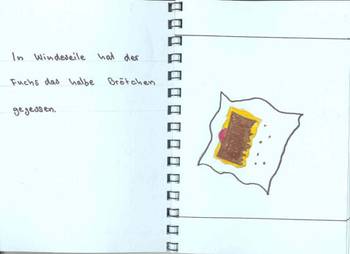 In Windeseile hat der
Fuchs das halbe Brötchen
gegessen.